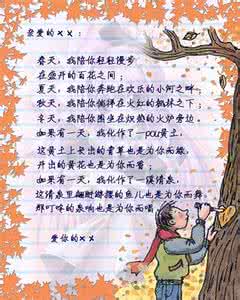 亲爱的××：
春天，我陪你轻轻漫步
在盛开的百花之间；
夏天，我陪你奔跑在欢乐的小河之畔；
秋天，我陪你徜徉在火红的枫林之下；
冬天，我陪你围坐在炽热的火炉旁边。
如果有一天，我化作了一抔黄土，
这黄土上长出的青草也是为你而绿，
开出的黄花也是为你而香；
如果有一天，我化作了一溪清泉，
这清泉里翩翩的鱼儿也是为你而舞，
那叮咚的泉响也是为你而唱。
爱你的××